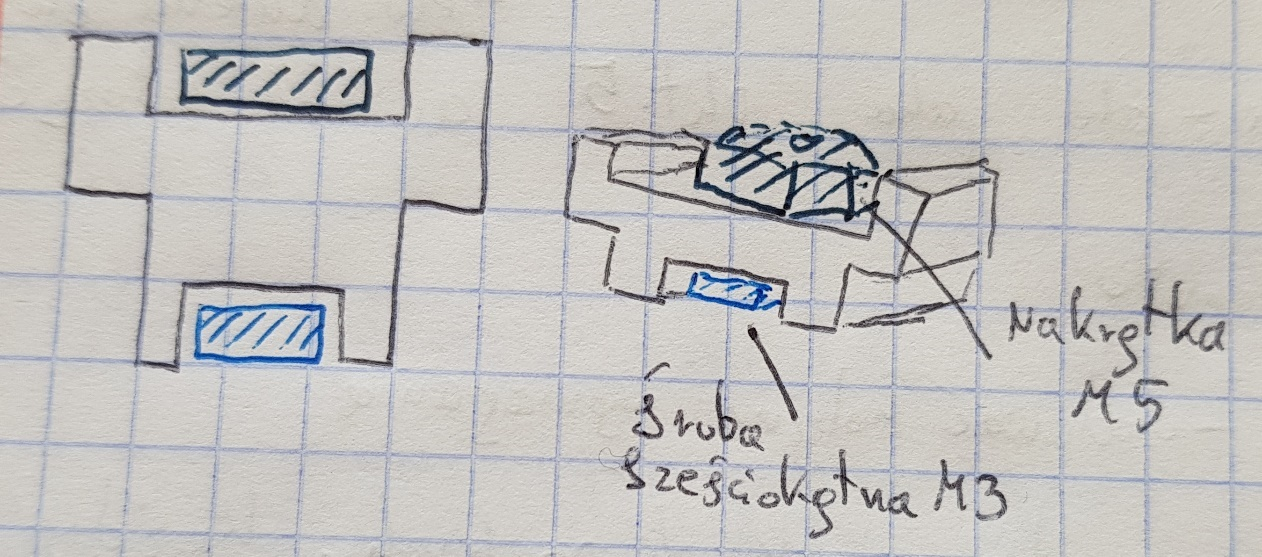 Nakrętka
M5
Śruba
sześciokątna M3